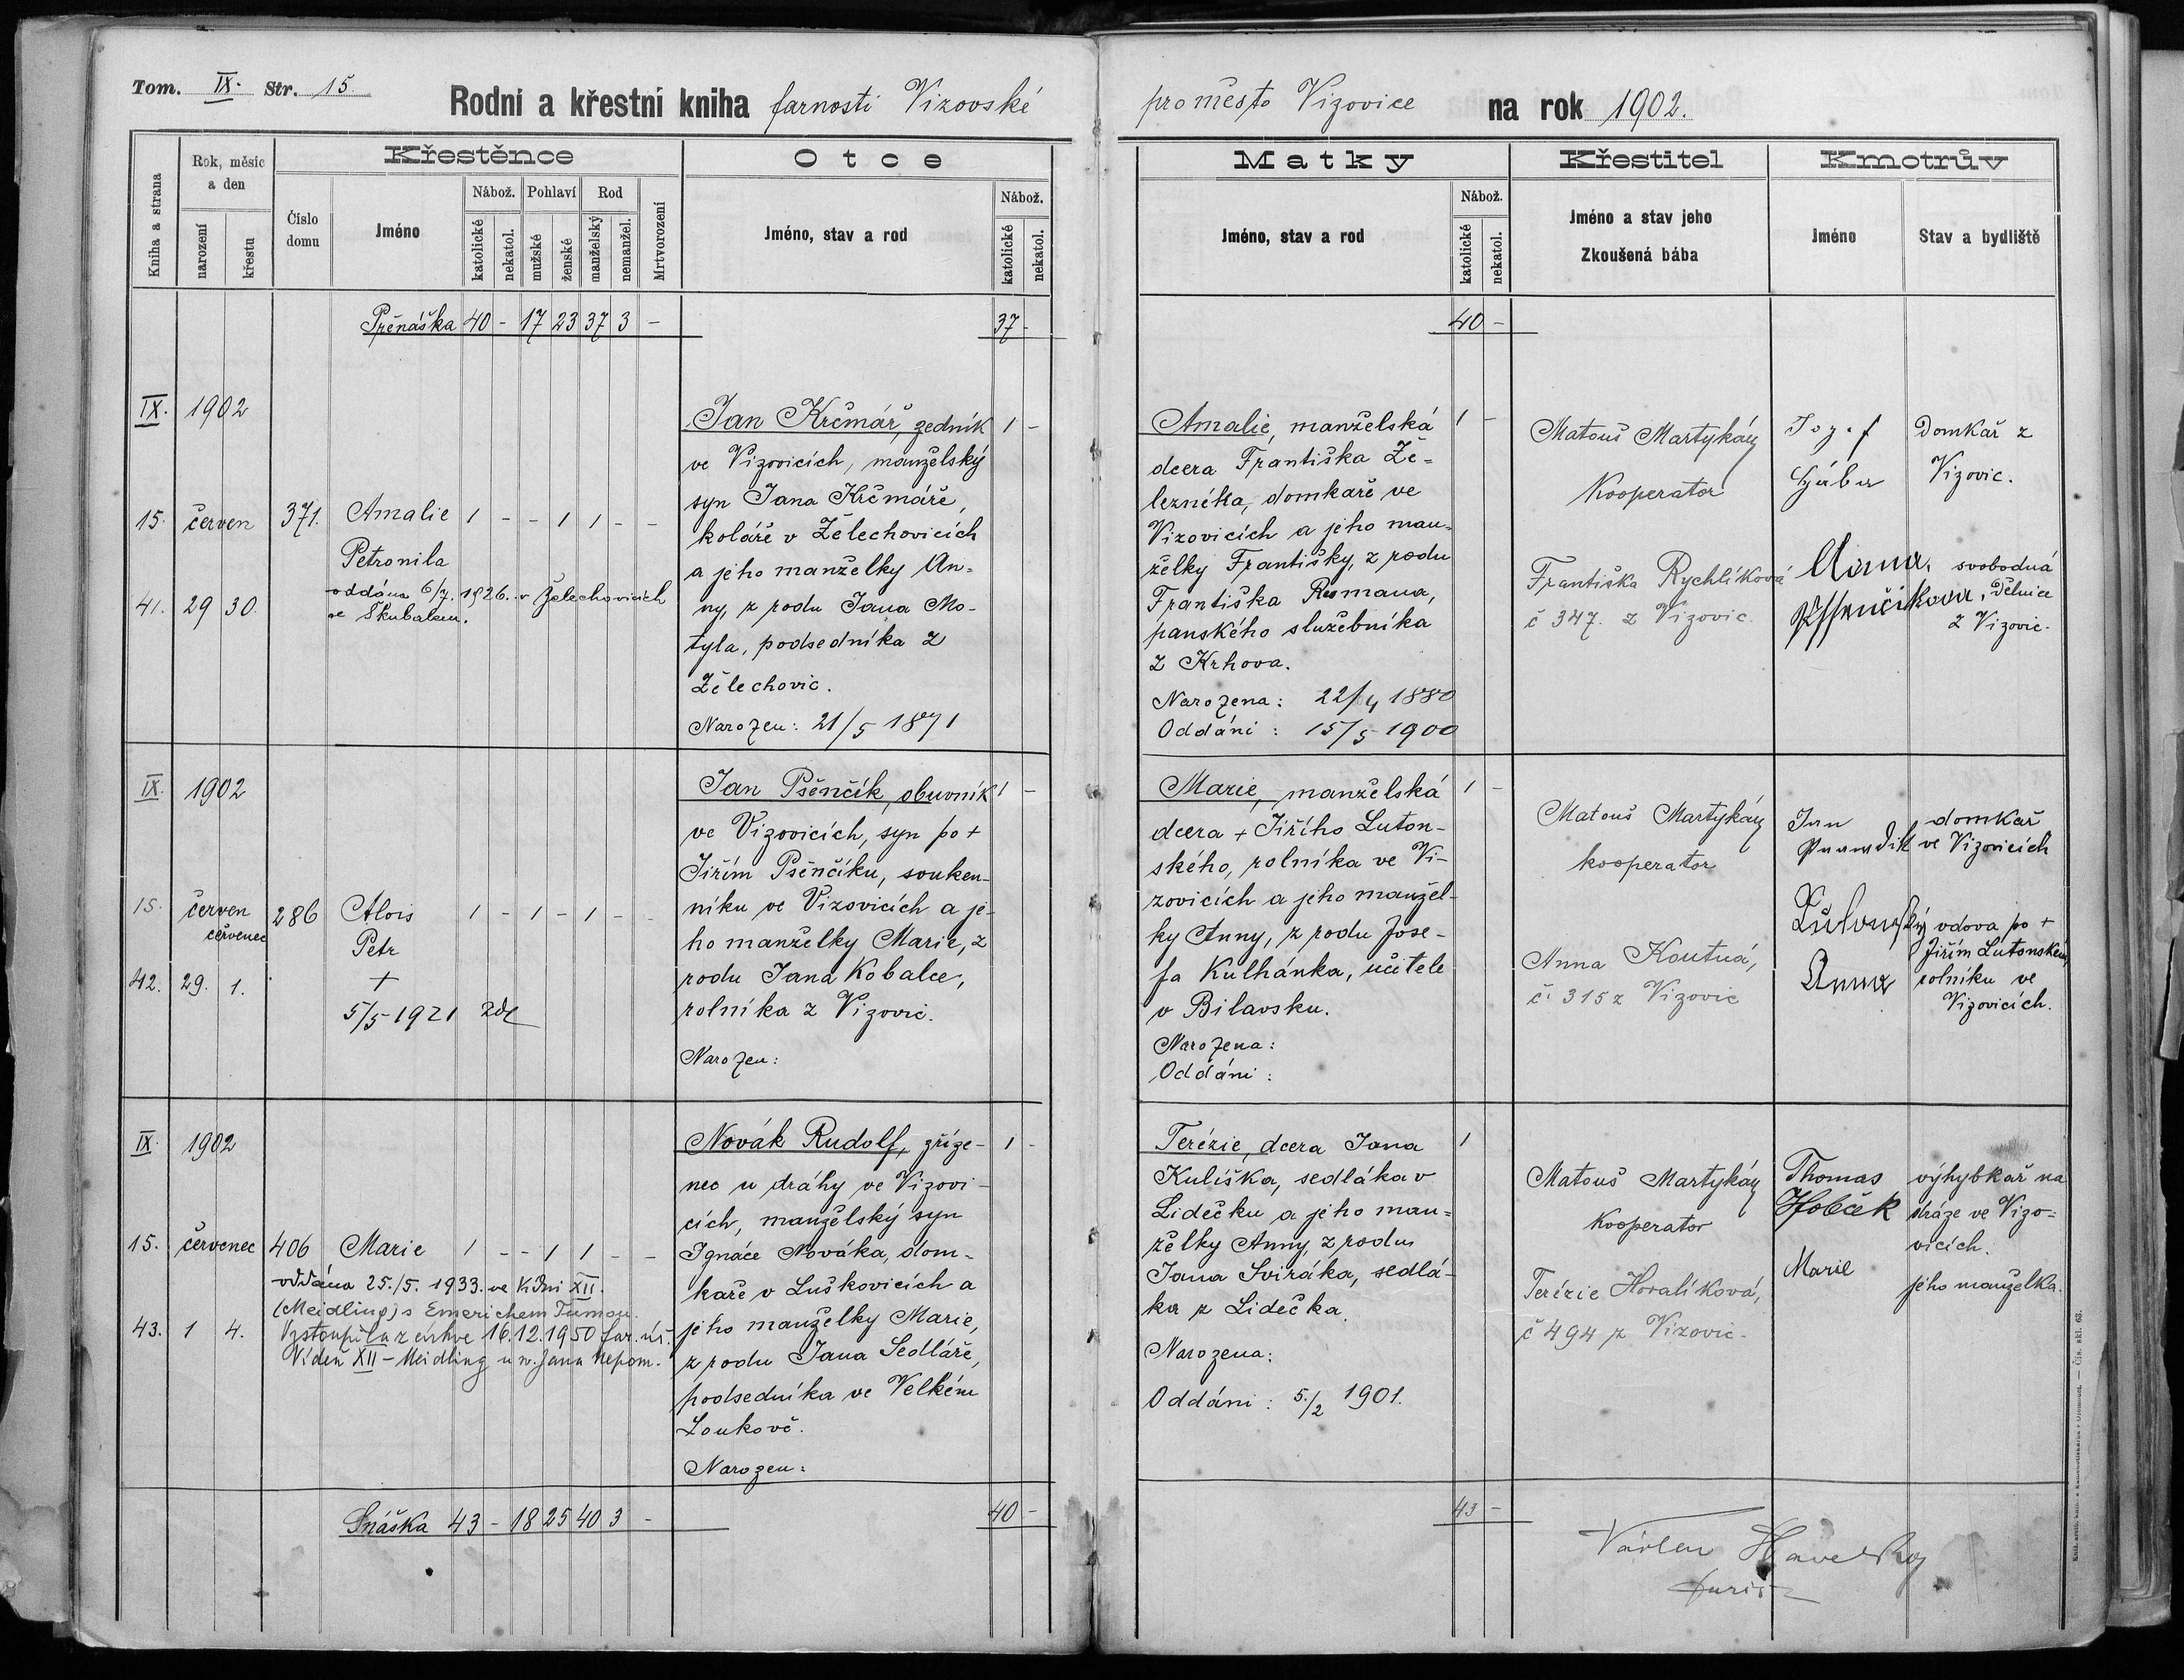 Tom. IX. Str. 15.
Rodní a křestní kniha farnosti Vizovské
pro město Vizovice na rok 1902.
Kniha a strana
Rok, měsíc a den
narození
křestu
Křestěnce
Číslo domu
Jméno
Nábož.
katolické
nekatol.
Pohlaví
mužské
ženské
Rod
manželský
nemanžel.
Mrtvorození
Otce
Jméno, stav a rod
Nábož.
katolické
nekatol.
Matky
Jméno, stav a rod
Nábož.
katolické
nekatol.
Křestitel
Jméno a stav jeho
Zkoušená bába
Kmotrův
Jméno
Stav a bydliště
Přenáška 40 - 17 23 37 3 -
37 -
40 -
IX. 1902
15. červen 371. Amalie 1 - - 1 1 - -
Petronila
oddána 6/7. 1926. v Želechovicích
se Skubalem.
41. 29 30.
Jan Krčmář, zedník 1 -
ve Vizovicích, manželský
syn Jana Krčmáře,
koláře v Želechovicích
a jeho manželky An-
ny, z rodu Jana Mo-
tyla, podsedníka z
Želechovic.
Narozen: 21/5 1871
Amalie, manželská 1 -
dcera Františka Že-
lezníka, domkaře ve
Vizovicích a jeho man-
želky Františky, z rodu
Františka Rosmana,
panského služebníka
z Krhova.
Narozena: 22/4 1880
Oddáni: 15/5 1900
Matouš Martykán
Kooperator
Františka Rychlíková
č 347. z Vizovic.
Jozef
Gábor
Domkař z
Vizovic.
Anna
Pšenčíkova
svobodná
dělnice
z Vizovic.
IX. 1902
15. červen 286 Alois 1 - 1 - 1 - -
červenec
Petr
42. 29. 1.
+
5/5 1921 zde
Jan Pšenčík, obuvník 1 -
ve Vizovicích, syn po +
Jiřím Pšenčíku, souken-
níku ve Vizovicích a je-
ho manželky Marie, z
rodu Jana Kobalce,
rolníka z Vizovic.
Narozen:
Marie, manželská 1 -
dcera + Jiřího Luton-
ského, rolníka ve Vi-
zovicích a jeho manžel-
ky Anny, z rodu Jose-
fa Kulhánka, učitele
v Bilavsku.
Narozena:
Oddáni:
Matouš Martykán
kooperator
Anna Koutná,
č. 315 z Vizovic
Jan
domkař
ve Vizovicích
Anna
vdova po +
Jiřím Lutonském
rolníku ve
Vizovicích.
IX. 1902
15. červenec 406 Marie 1 - - 1 1 - -
oddána 25./5. 1933. ve Vídni XII.
(Meidling) s Emerichem Tumou.
Vystoupila z církve 16.12.1950 far. úř.
Vídeň XII - Meidling u sv. Jana Nepom.
43. 1 4.
Novák Rudolf, zříze- 1 -
nec u dráhy ve Vizovi-
cích, manželský syn
Ignáce Nováka, dom-
kaře v Luškovicích a
jeho manželky Marie,
z rodu Jana Sedláře,
podsedníka ve Velkém
Loukově.
Narozen:
Terézie, dcera Jana 1
Kuliška, sedláka v
Lidečku a jeho man-
želky Anny, z rodu
Jana Sviráka, sedlá-
ka z Lidečka.
Narozena:
Oddáni: 5./2 1901.
Matouš Martykán
Kooperator
Terézie Horalíková,
č 494 z Vizovic.
Thomas
Holček
výhybkař na
dráze ve Vizo-
vicích.
Marie
jeho manželka.
Snáška 43 - 18 25 40 3 -
40 -
43 -
Václav Havelka